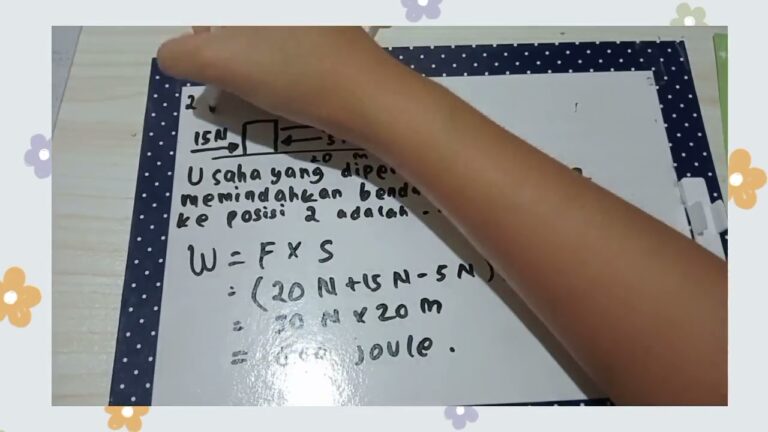 2
15 N
20 m
Usaha yang
memindahkan benda
ke posisi 2 adalah
W = F x S
= (20 N + 15 N - 5 N)
= 30 N x 20 m
= joule.